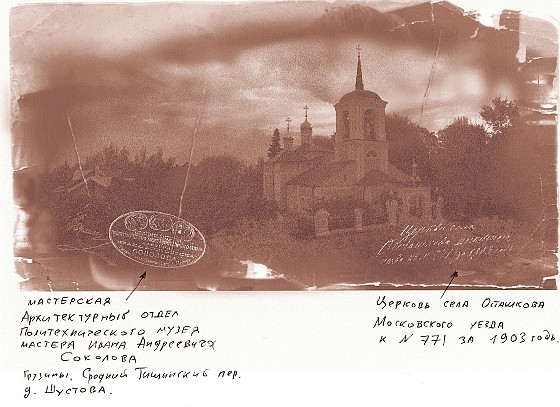 Церковь села
МАСТЕРСКАЯ
АРХИТЕКТУРНЫЙ ОТДЕЛ
ПОЛИТЕХНИЧЕСКОГО МУЗЕЯ
МАСТЕРА ИВАНА АНДРЕЕВИЧА
СОКОЛОВА
Грузины, Средний Тишинский пер.
д. Шустова.
Церковь села Осташкова
Московского уезда
к N 771 за 1903 годъ.